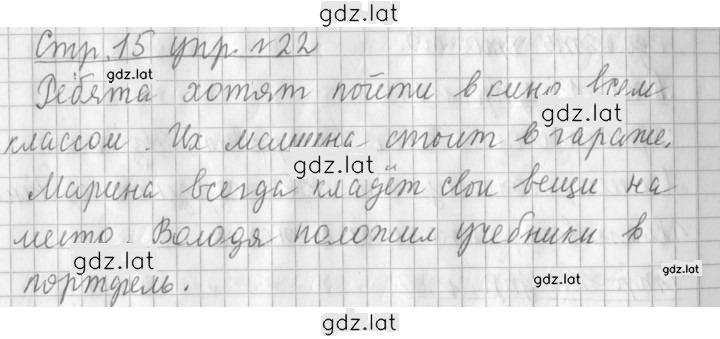 gdz.lat
Стр. 15 упр. №22
gdz.lat
Ребята хотят пойти в кино всем
классом. Их машина стоит в гараже.
gdz.lat
Марина всегда кладёт свои вещи на
место. Володя положил учебники в
gdz.lat
gdz.lat
gdz.lat
портфель.
gdz.lat